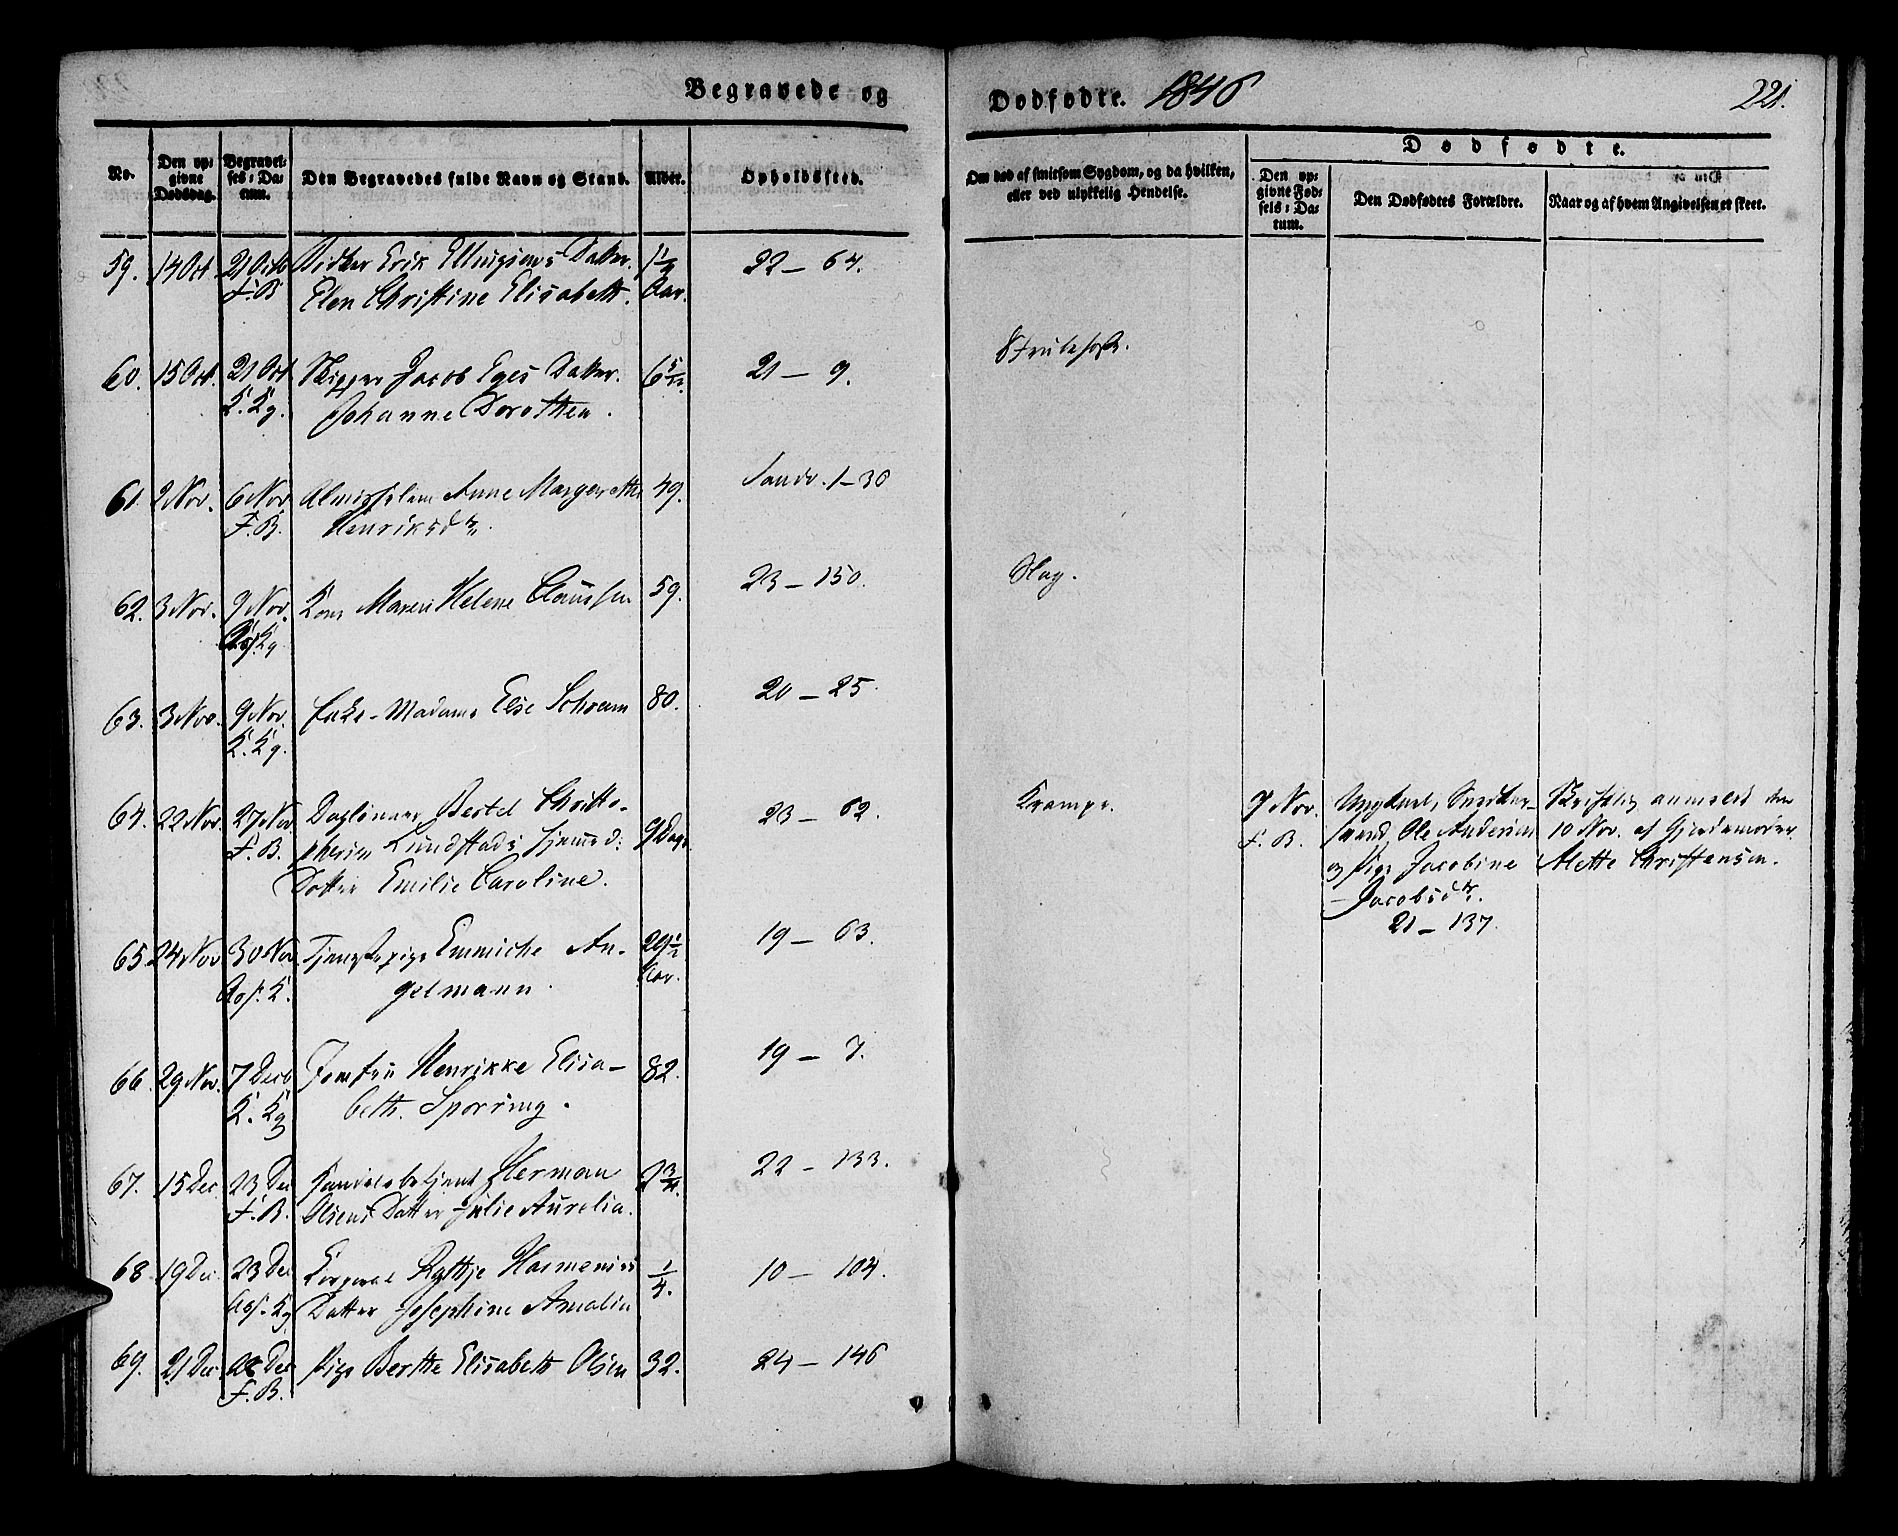 Begravede og
Dødfødte. 1846
221.
No.
Den opgivne Dødsdag.
Begravelses-Datum.
Den Begravedes fulde Navn og Stand.
Alder.
Opholdssted.
Om død af smitsom Sygdom, og da hvilken, eller ved ulykkelig Hendelse.
Dødfødte.
Den opgivne Fødsels-Datum.
Den Dødfødtes Forældre.
Naar og af hvem Angivelsen er skeet.
59. 14 Oct. 21 Octb Erik Ellingsens Datter. 1 1/4 22 – 64.
F. B. Elen Christine Elisabeth. Aar.
60. 15 Oct. 21 Oct Skipper Jacob Eges Datter. 6 5/12 21 – 9. Strubehoste.
K. Kg. Johanne Dorothea.
61. 2 Nov. 6 Nov. Almisselem Anne Margerethe 49. Sandv. 1–30
F. B. Henriksdtr.
62. 3 Nov. 9 Nov. Kone Maren Helene Claussen 59. 23 – 150. Slag.
Kg
63. 3 Nov. 9 Nov. Enke-Madame Else Schram 80. 20 – 25.
K. Kg.
64. 22 Nov. 27 Nov Daglønner Bertel Christo- 9 Dage 23 – 62. Krampe.
F. B. phersen Lundstads hjemmed:
Datter Emilie Caroline.
7 Nov. Ungkarl, Snedker-
F. B. svend Ole Andersen
og Pige Jacobine
Jacobsdtr.
21 – 137.
Skriftlig anmeldt den
10 Nov. af Gjordemoder
Alette Christensen.
65. 24 Nov 30 Nov. Tjenestepige Emmiche An- 29 1/2 19 – 63.
gelmann. Aar.
66. 29 Nov. 7 Decb Jomfru Henrikke Elisa- 82. 19 – 7.
K. Kg beth. Sporring.
67. 15 Dec 23 Dec Handelsbetjent Herman 22 – 133.
F. B. Olsens Datter Julie Aurelia.
68 19 Dec 23 Dec Korporal Hosmenses 1/4. 10 – 104.
Kg Datter Josephine Amalia
69. 21 Dec Dec Pige Berthe Elisabeth Olsen 32. 24 – 146
F. B.